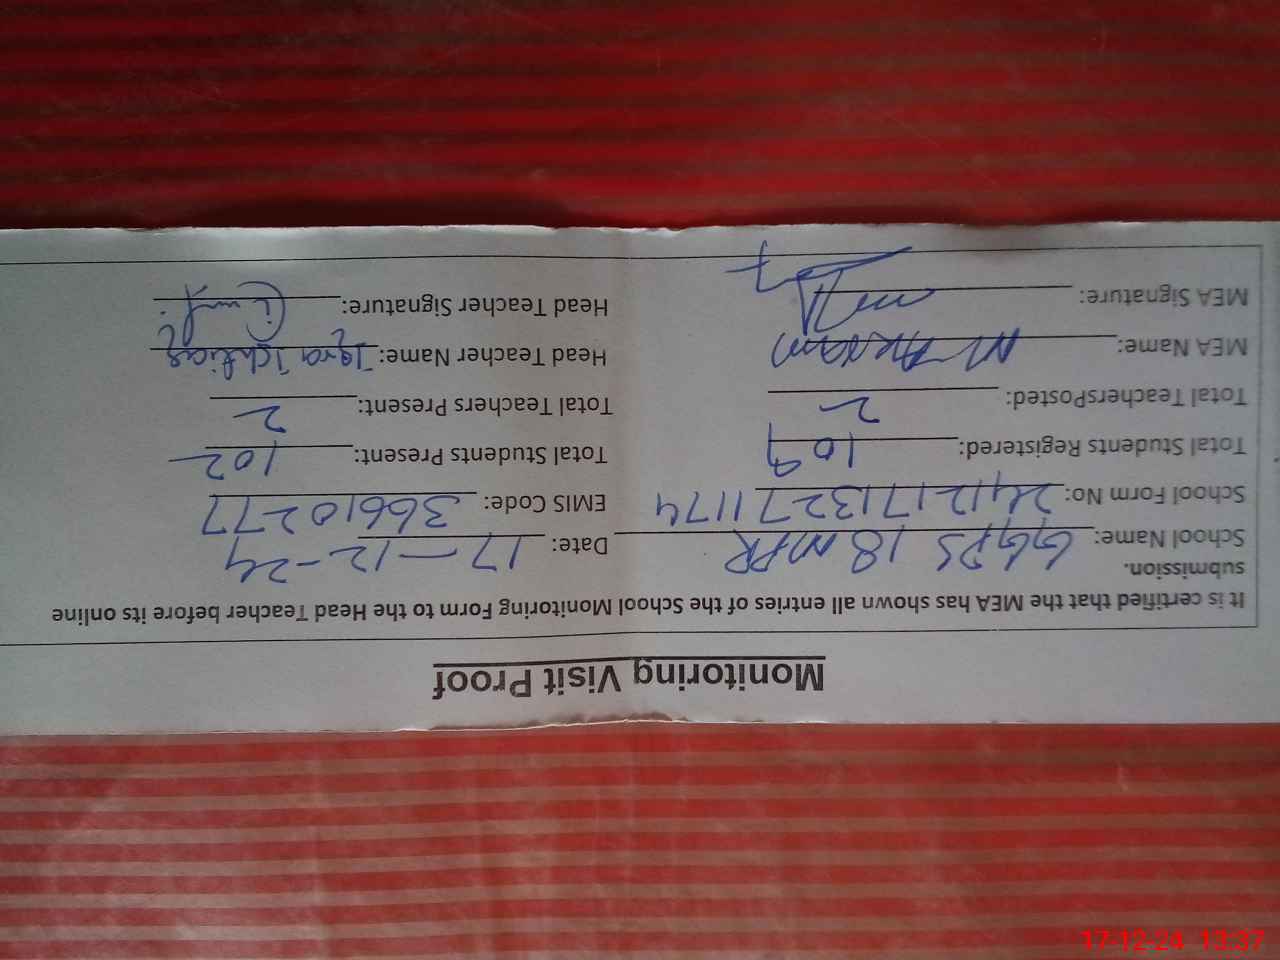 Monitoring Visit Proof
It is certified that the MEA has shown all entries of the School Monitoring Form to the Head Teacher before its online
submission.
School Name: GGPS 18 MPR Date: 17-12-24
School Form No: 2412171327 1174 EMIS Code: 36610277
Total Students Registered: 109 Total Students Present: 102
Total TeachersPosted: 2 Total Teachers Present: 2
MEA Name: M Akram Head Teacher Name: Iqra Ishtiaq
MEA Signature: Head Teacher Signature:
17-12-24 13:37